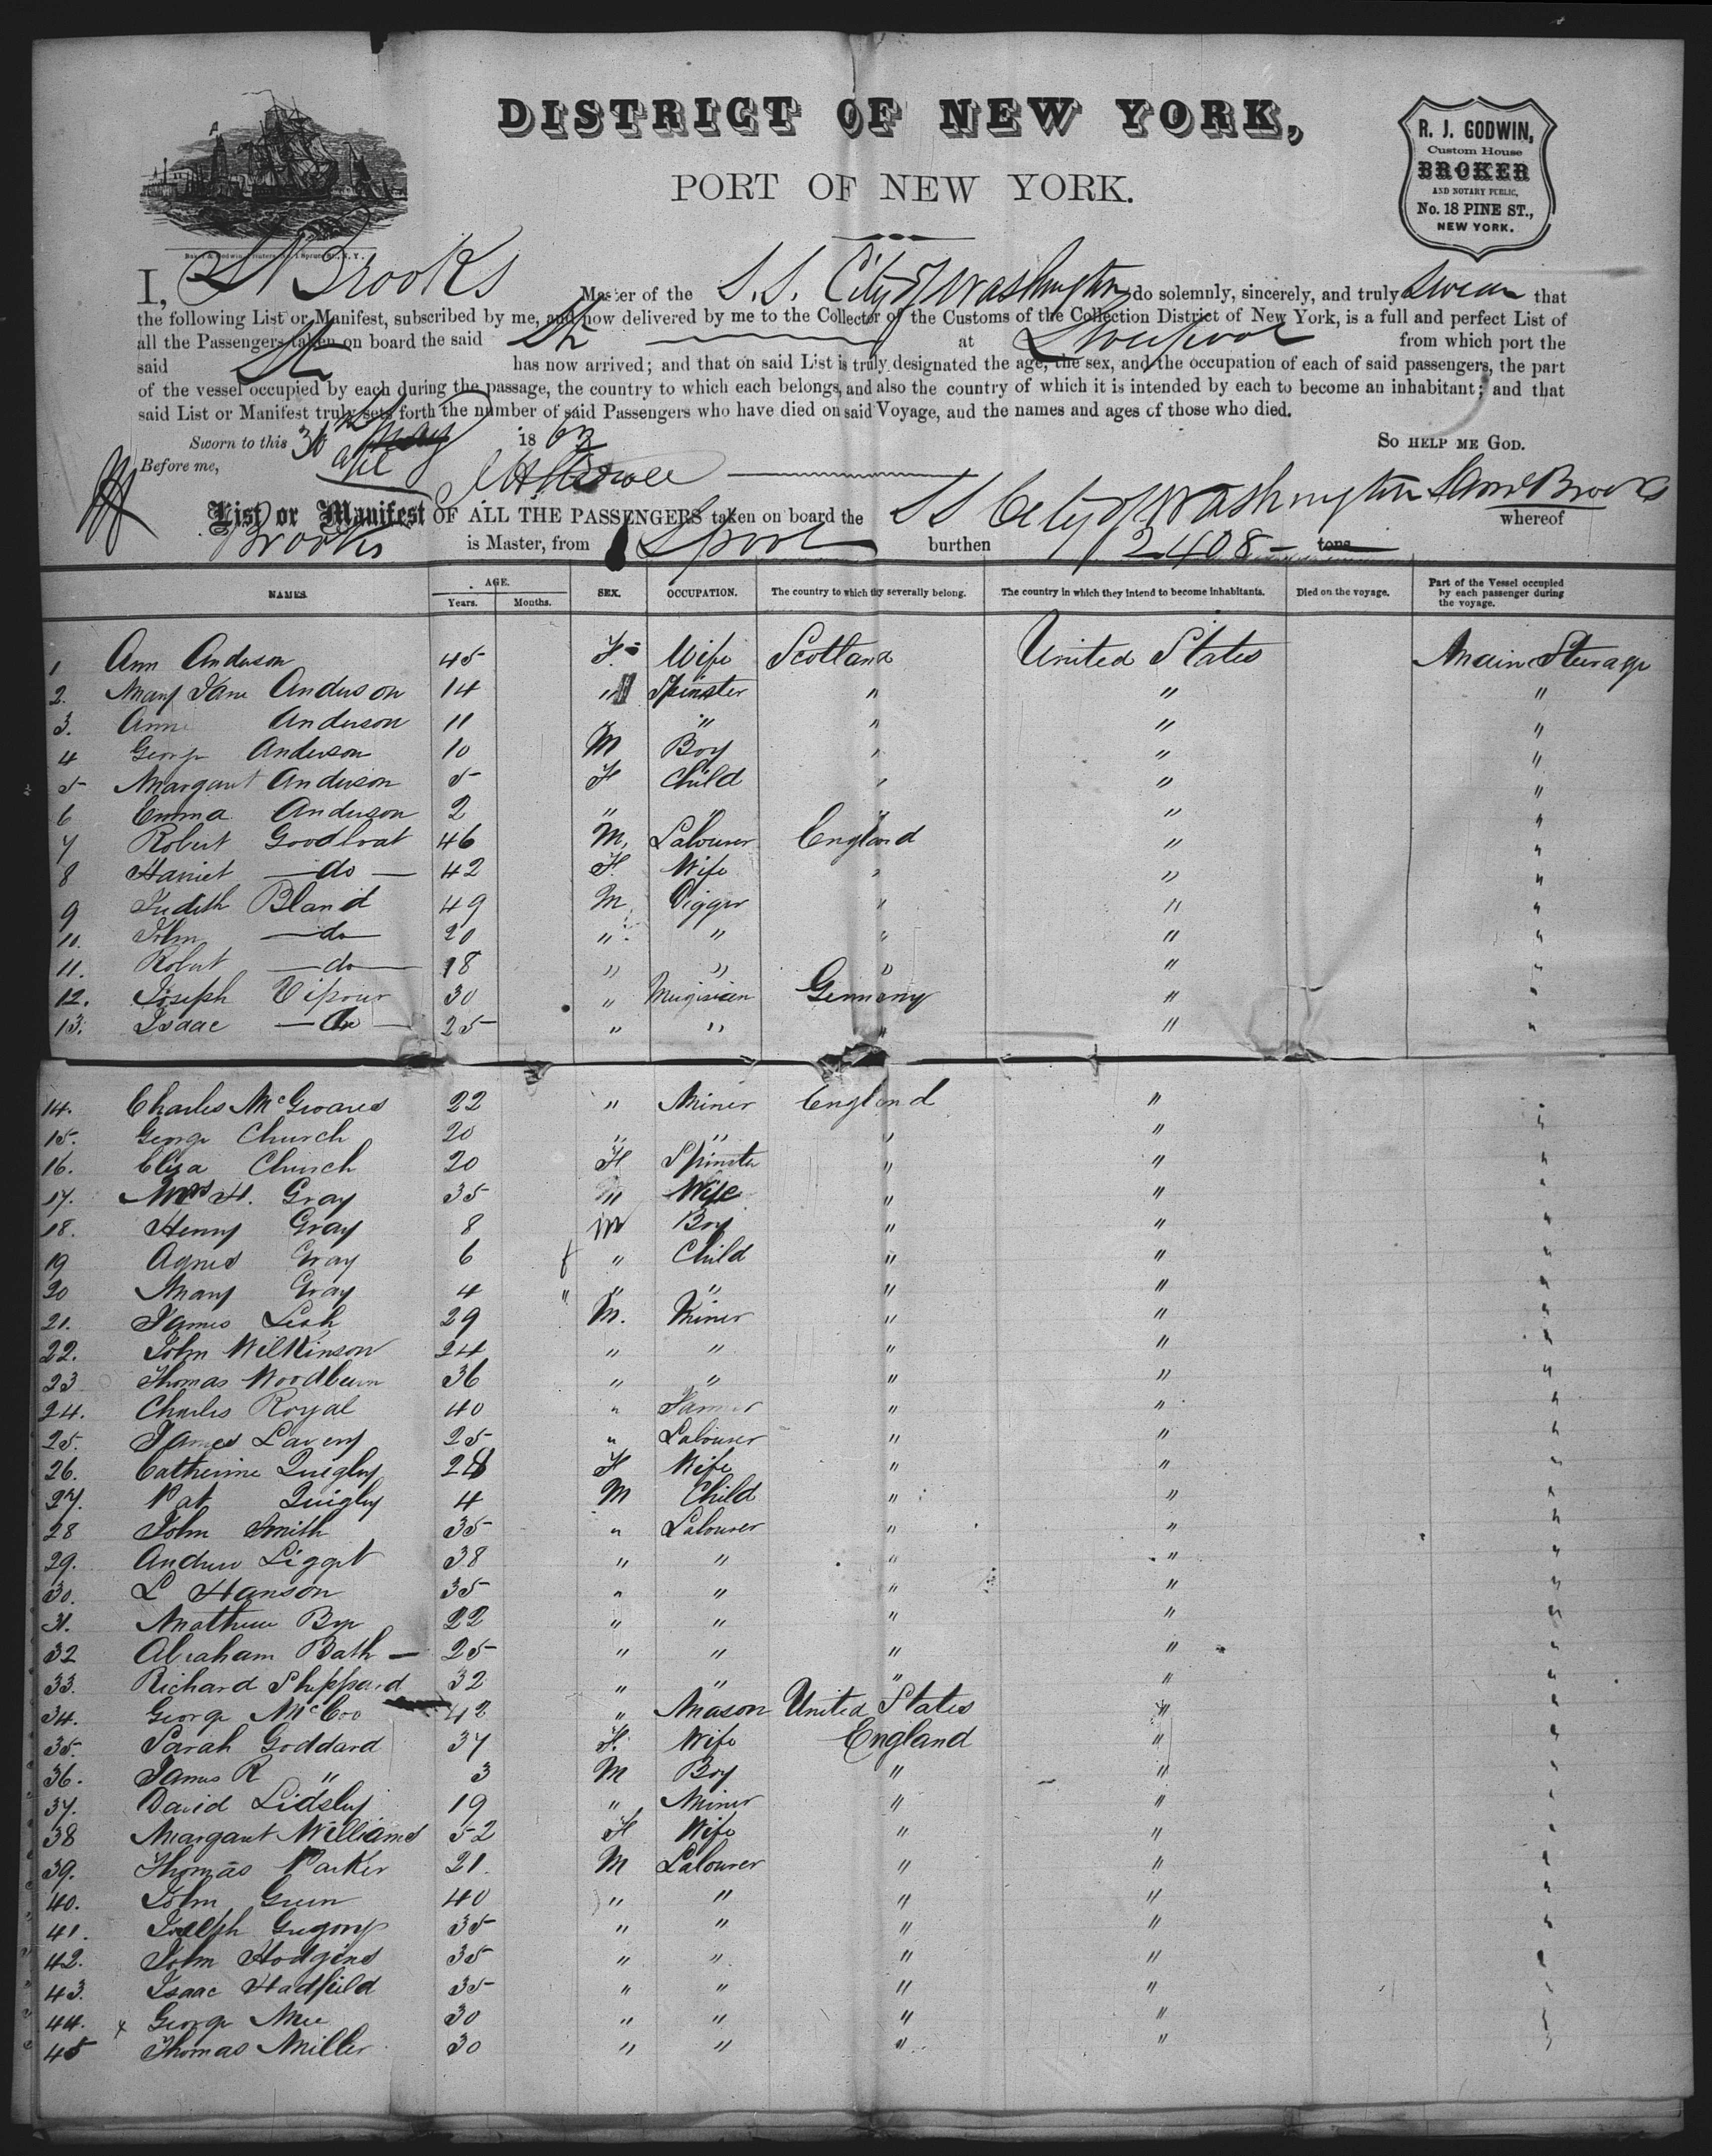 DISTRICT OF NEW YORK,
PORT OF NEW YORK.
R. J. GODWIN,
Custom House
BROKER
AND NOTARY PUBLIC,
No. 18 PINE ST.,
NEW YORK.
I, S Brooks Master of the S.S. City of Washington do solemnly, sincerely, and truly Swear that
the following List or Manifest, subscribed by me, and now delivered by me to the Collector of the Customs of the Collection District of New York, is a full and perfect List of
all the Passengers taken on board the said Str at Liverpool from which port the
said Str has now arrived; and that on said List is truly designated the age, the sex, and the occupation of each of said passengers, the part
of the vessel occupied by each during the passage, the country to which each belongs, and also the country of which it is intended by each to become an inhabitant; and that
said List or Manifest truly sets forth the number of said Passengers who have died on said Voyage, and the names and ages of those who died.
Sworn to this 30 May 1863 SO HELP ME GOD.
Before me,
List or Manifest OF ALL THE PASSENGERS taken on board the SS City of Washington Saml Brooks whereof
Brooks is Master, from Lpool burthen 2408 tons
NAMES. AGE. Years. Months. SEX. OCCUPATION. The country to which they severally belong. The country in which they intend to become inhabitants. Died on the voyage. Part of the Vessel occupied by each passenger during the voyage.
1 Ann Anderson 45 F. Wife Scotland United States Main Steerage
2. Mary Jane Anderson 14 " Spinster " " "
3. Anne Anderson 11 " " " "
4 George Anderson 10 M Boy " " "
5 Margaret Anderson 5 F Child " " "
6 Emma Anderson 2 " " " " "
7 Robert Goodbrat 46 M. Labourer England " "
8 Harriet do 42 F. Wife " " "
9 Judith Bland 49 M Digger " " "
10. John do 20 " " " " "
11. Robert do 18 " " " " "
12. Joseph Vipour 30 " Mugisian Germany " "
13. Isaac do 25 " " " " "
14. Charles McGwares 22 " Miner England " "
15. George Church 20 " " " " "
16. Eliza Church 20 F Spinster " " "
17. Mrs H. Gray 35 " Wife " " "
18. Henry Gray 8 M Boy " " "
19 Agnes Gray 6 f " Child " " "
20 Mary Gray 4 " " " " " "
21. James Lish 29 M. Miner " " "
22. John Wilkinson 24 " " " " "
23 Thomas Woodburn 36 " " " " "
24. Charles Royal 40 " Farmer " " "
25. James Lavery 25 " Labourer " " "
26. Catherine Quigley 28 F Wife " " "
27. Pat Quigley 4 M Child " " "
28 John Smith 35 " Labourer " " "
29. Andrew Ligget 38 " " " " "
30. L Hanson 35 " " " " "
31. Mathew Boy 22 " " " " "
32 Abraham Bath 25 " " " " "
33. Richard Sheppard 32 " " " " "
34. George McCoo 42 " Mason United States " "
35. Sarah Goddard 37 F. Wife England " "
36. James R " 3 M Boy " " "
37. David Lidsley 19 " Miner " " "
38 Margaret Williams 52 F Wife " " "
39. Thomas Parker 21. M Labourer " " "
40. John Green 40 " " " " "
41. Joseph Gregory 35 " " " " "
42. John Hodgins 35 " " " " "
43. Isaac Hadfield 35 " " " " "
44. x George Mee 30 " " " " "
45 Thomas Miller 30 " " " " "